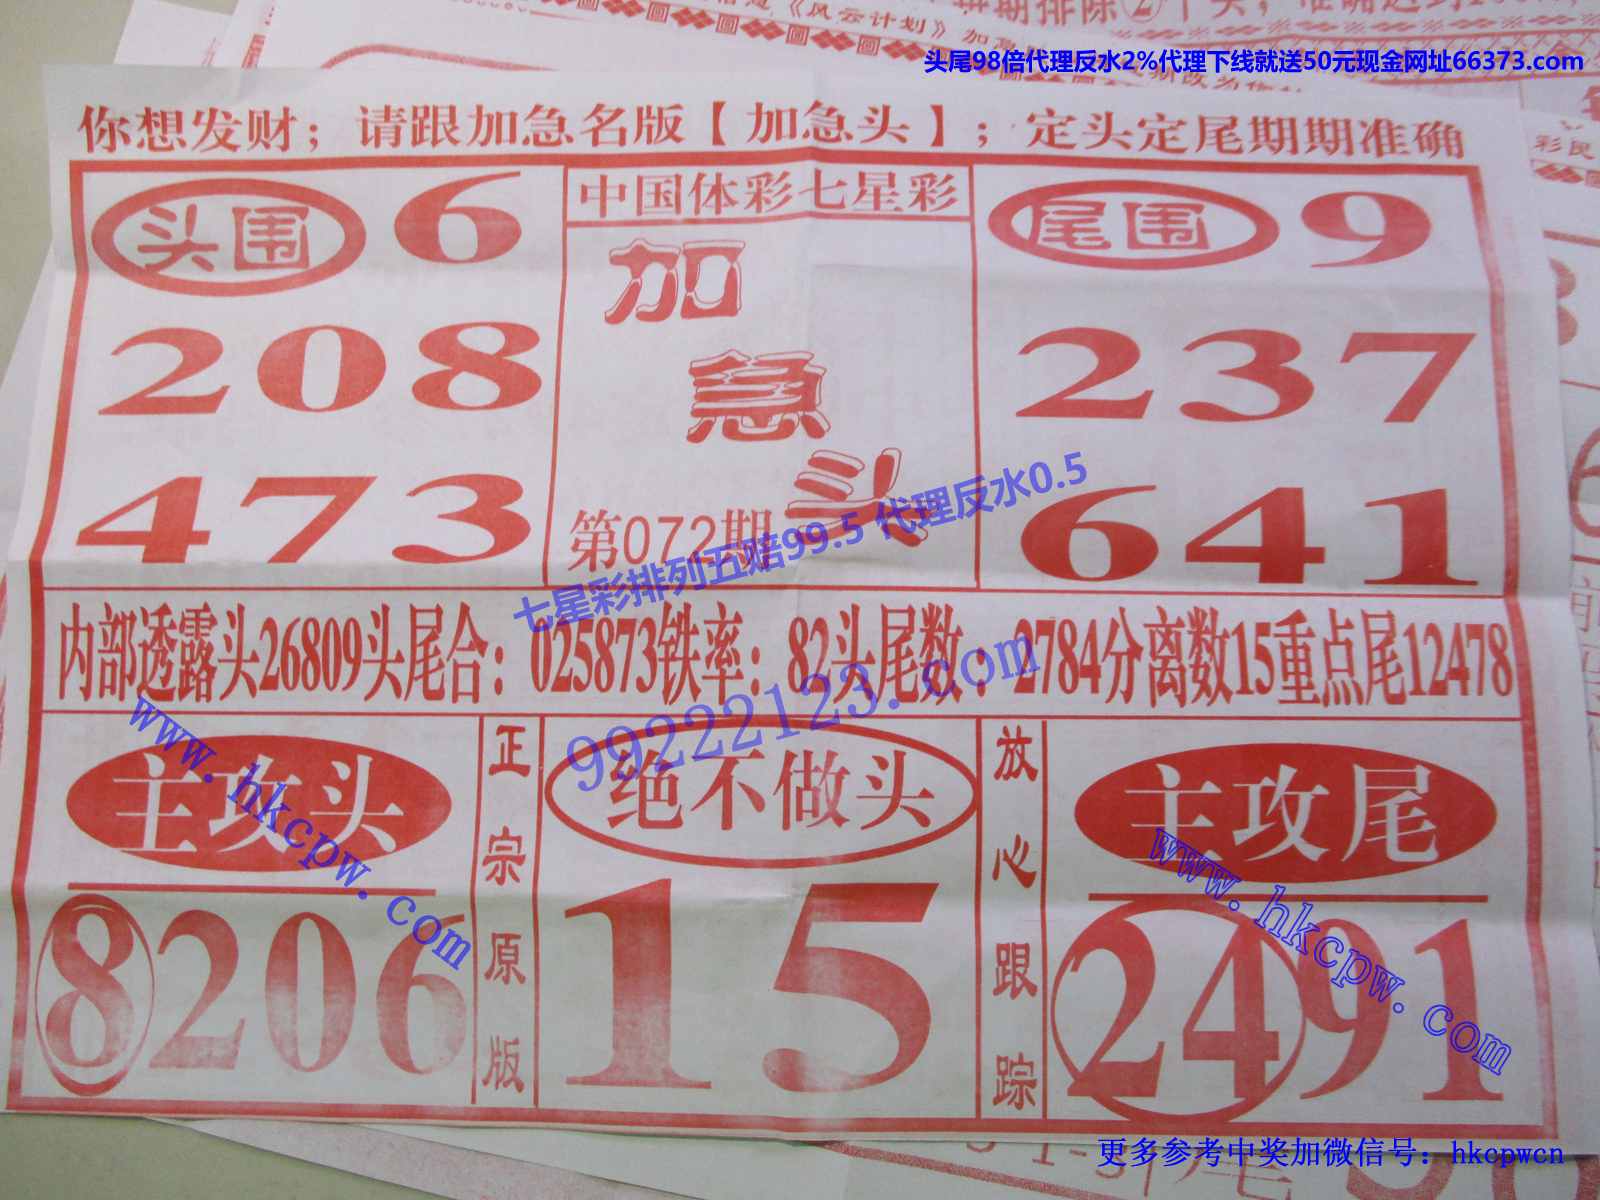 信息《风云计划》加急
期排除②个头，准确达到100%
头尾98倍代理反水2%代理下线就送50元现金网址66373.com
你想发财；请跟加急名版【加急头】；定头定尾期期准确
彩民
头围 6
208
473
中国体彩七星彩
加急头
第072期
尾围 9
237
641
七星彩排列五赔99.5 代理反水0.5
内部透露头26809头尾合：025873铁率：82头尾数：2784分离数15重点尾12478
99222123.com
主攻头
8206
正宗原版
绝不做头
15
放心跟踪
主攻尾
2491
www.hkcpw.com
www.hkcpw.com
更多参考中奖加微信号：hkcpwcn